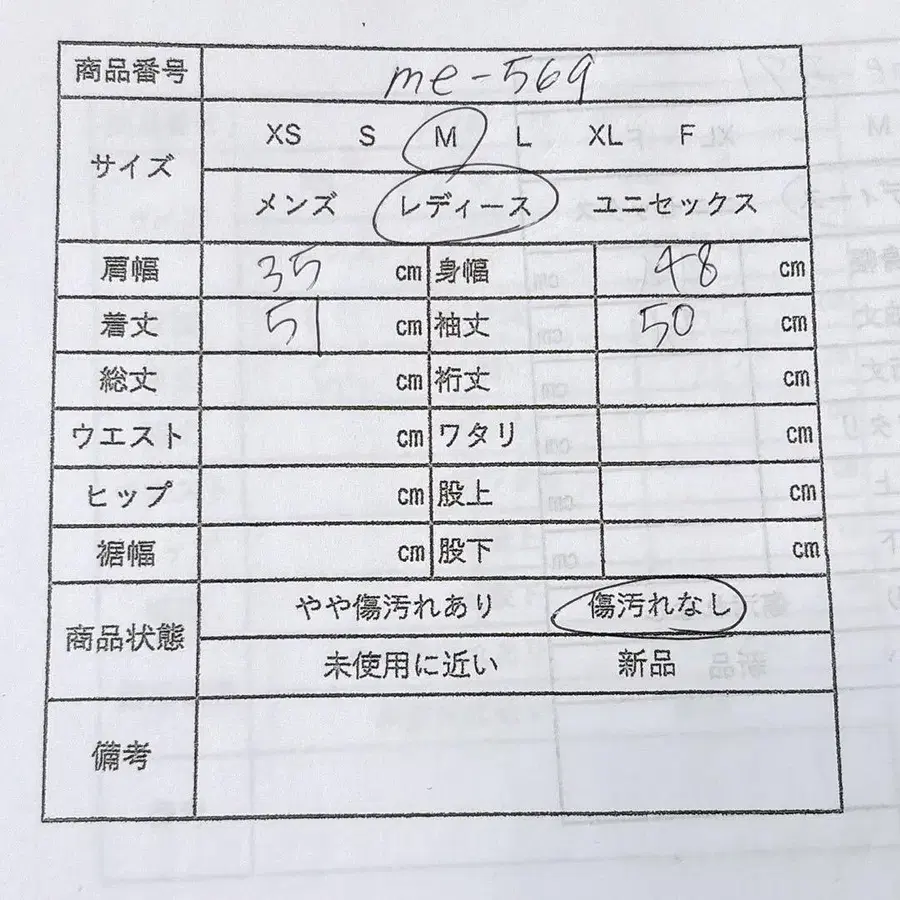 商品番号 me-569
サイズ XS S M L XL F
メンズ レディース ユニセックス
肩幅 35 cm 身幅 48 cm
着丈 51 cm 袖丈 50 cm
総丈 cm 裄丈 cm
ウエスト cm ワタリ cm
ヒップ cm 股上 cm
裾幅 cm 股下 cm
商品状態 やや傷汚れあり 傷汚れなし
未使用に近い 新品
備考